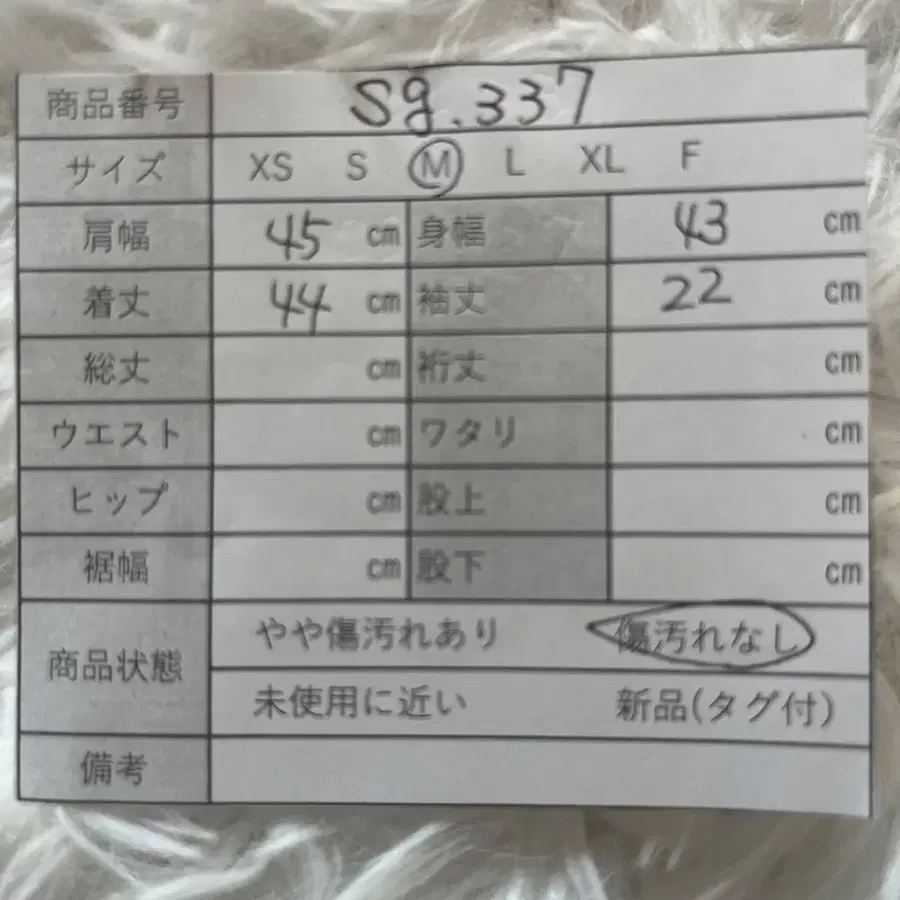 商品番号 sg.337
サイズ XS S M L XL F
肩幅 45 cm 身幅 43 cm
着丈 44 cm 袖丈 22 cm
総丈 cm 裄丈 cm
ウエスト cm ワタリ cm
ヒップ cm 股上 cm
裾幅 cm 股下 cm
商品状態 やや傷汚れあり 傷汚れなし
未使用に近い 新品(タグ付)
備考